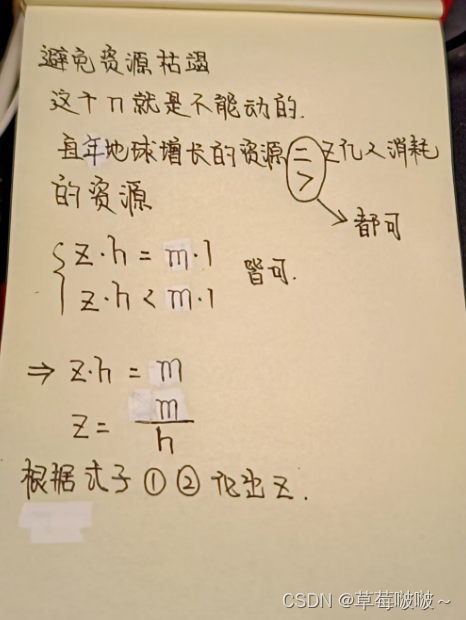 避免资源枯竭
这个n就是不能动的.
且年地球增长的资源 = z亿人消耗
>
的资源
都可
z·h = m·1
皆可.
z·h < m·1
⇒ z·h = m
z = m/h
根据式子①②化出z.
CSDN @草莓啵啵～